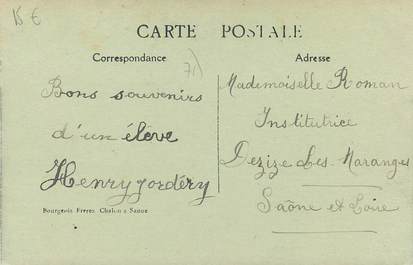 15 €
CARTE POSTALE
Correspondance
Adresse
71)
Bons souvenirs
d'un élève
Henry Jordéry
Mademoiselle Roman
Institutrice
Dezize Les-Maranges
Saône et Loire
Bourgeois Frères Chalon s Saone